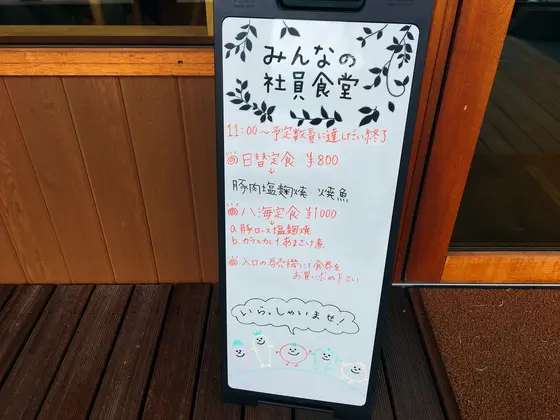 みんなの
社員食堂
11:00〜予定数量に達しだい終了
日替定食 ¥800
↓
豚肉塩麹焼・焼魚
八海定食 ¥1000
↓
a.豚ロース塩麹焼
b.カラスカレイあまさけ煮
入口の券売機にて食券を
お買い求め下さい
いらっしゃいませ!